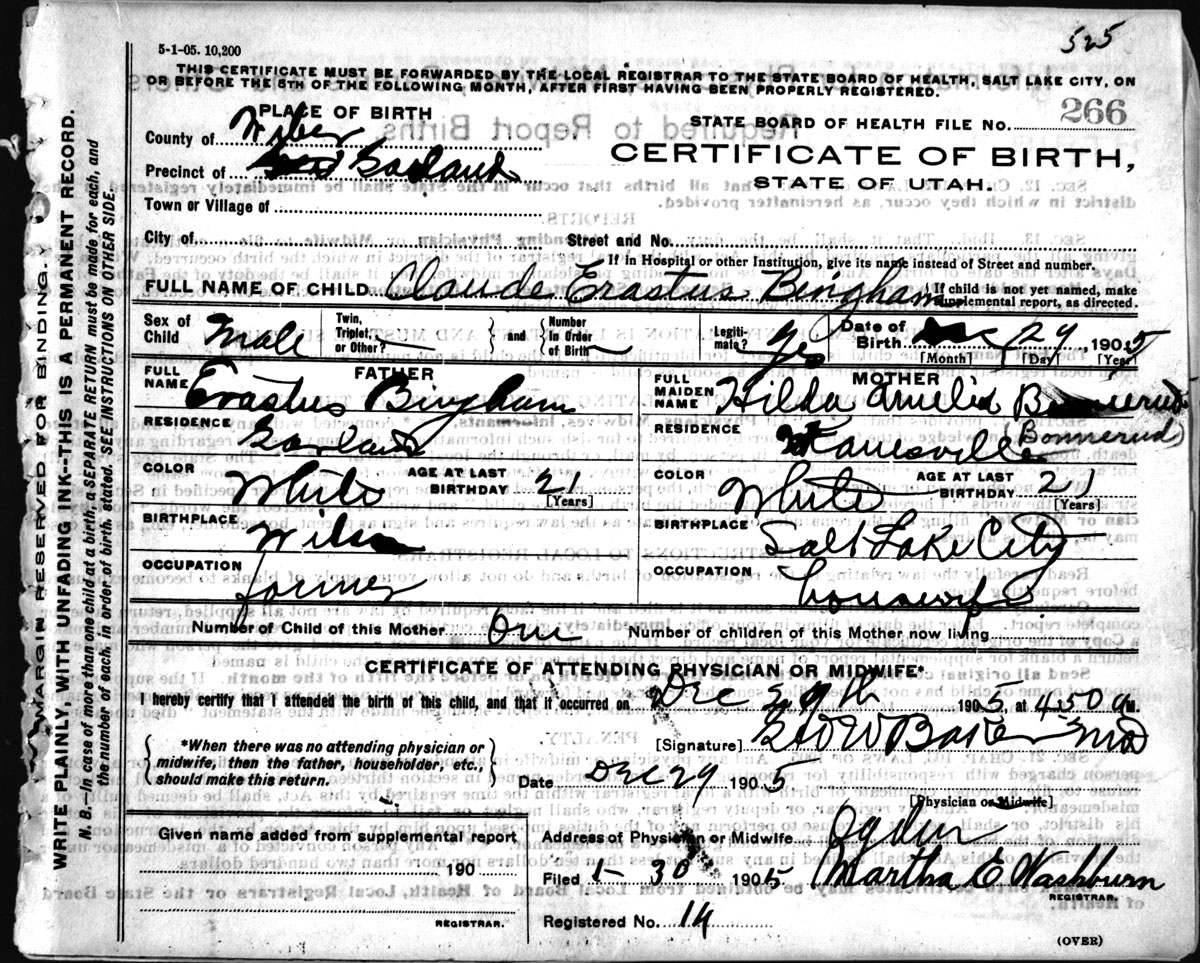 525
5-1-05. 10,200
THIS CERTIFICATE MUST BE FORWARDED BY THE LOCAL REGISTRAR TO THE STATE BOARD OF HEALTH, SALT LAKE CITY, ON
OR BEFORE THE 5TH OF THE FOLLOWING MONTH, AFTER FIRST HAVING BEEN PROPERLY REGISTERED.
PLACE OF BIRTH
STATE BOARD OF HEALTH FILE NO. 266
County of Weber
CERTIFICATE OF BIRTH,
Precinct of Garland
STATE OF UTAH.
Town or Village of
City of Street and No.
If in Hospital or other Institution, give its name instead of Street and number.
FULL NAME OF CHILD Claude Erastus Bingham { If child is not yet named, make
supplemental report, as directed.
Sex of Child Male Twin, Triplet, or Other? { and } Number in Order of Birth Legiti- mate? yes Date of Birth Dec 29, 1905
[Month] [Day] [Year]
FATHER MOTHER
FULL NAME Erastus Bingham FULL MAIDEN NAME Hilda Amelia
RESIDENCE Garland RESIDENCE Kanesville (Bonnerud)
COLOR White AGE AT LAST BIRTHDAY 21 [Years] COLOR White AGE AT LAST BIRTHDAY 21 [Years]
BIRTHPLACE Wilson BIRTHPLACE Salt Lake City
OCCUPATION farmer OCCUPATION housewife
Number of Child of this Mother One Number of children of this Mother now living
CERTIFICATE OF ATTENDING PHYSICIAN OR MIDWIFE*
I hereby certify that I attended the birth of this child, and that it occurred on Dec 29th 1905 at 4:50 a M.
{ *When there was no attending physician or midwife, then the father, householder, etc., should make this return. }
[Signature] Baker MD
Date Dec 29 1905
[Physician or Midwife]
Given name added from supplemental report
190
REGISTRAR.
Address of Physician or Midwife Ogden
Filed 1-30 1905 Martha E Washburn
REGISTRAR.
Registered No. 14
(OVER)
MARGIN RESERVED FOR BINDING.
WRITE PLAINLY, WITH UNFADING INK--THIS IS A PERMANENT RECORD.
N. B.—In case of more than one child at a birth, a SEPARATE RETURN must be made for each, and
the number of each, in order of birth, stated. SEE INSTRUCTIONS ON OTHER SIDE.